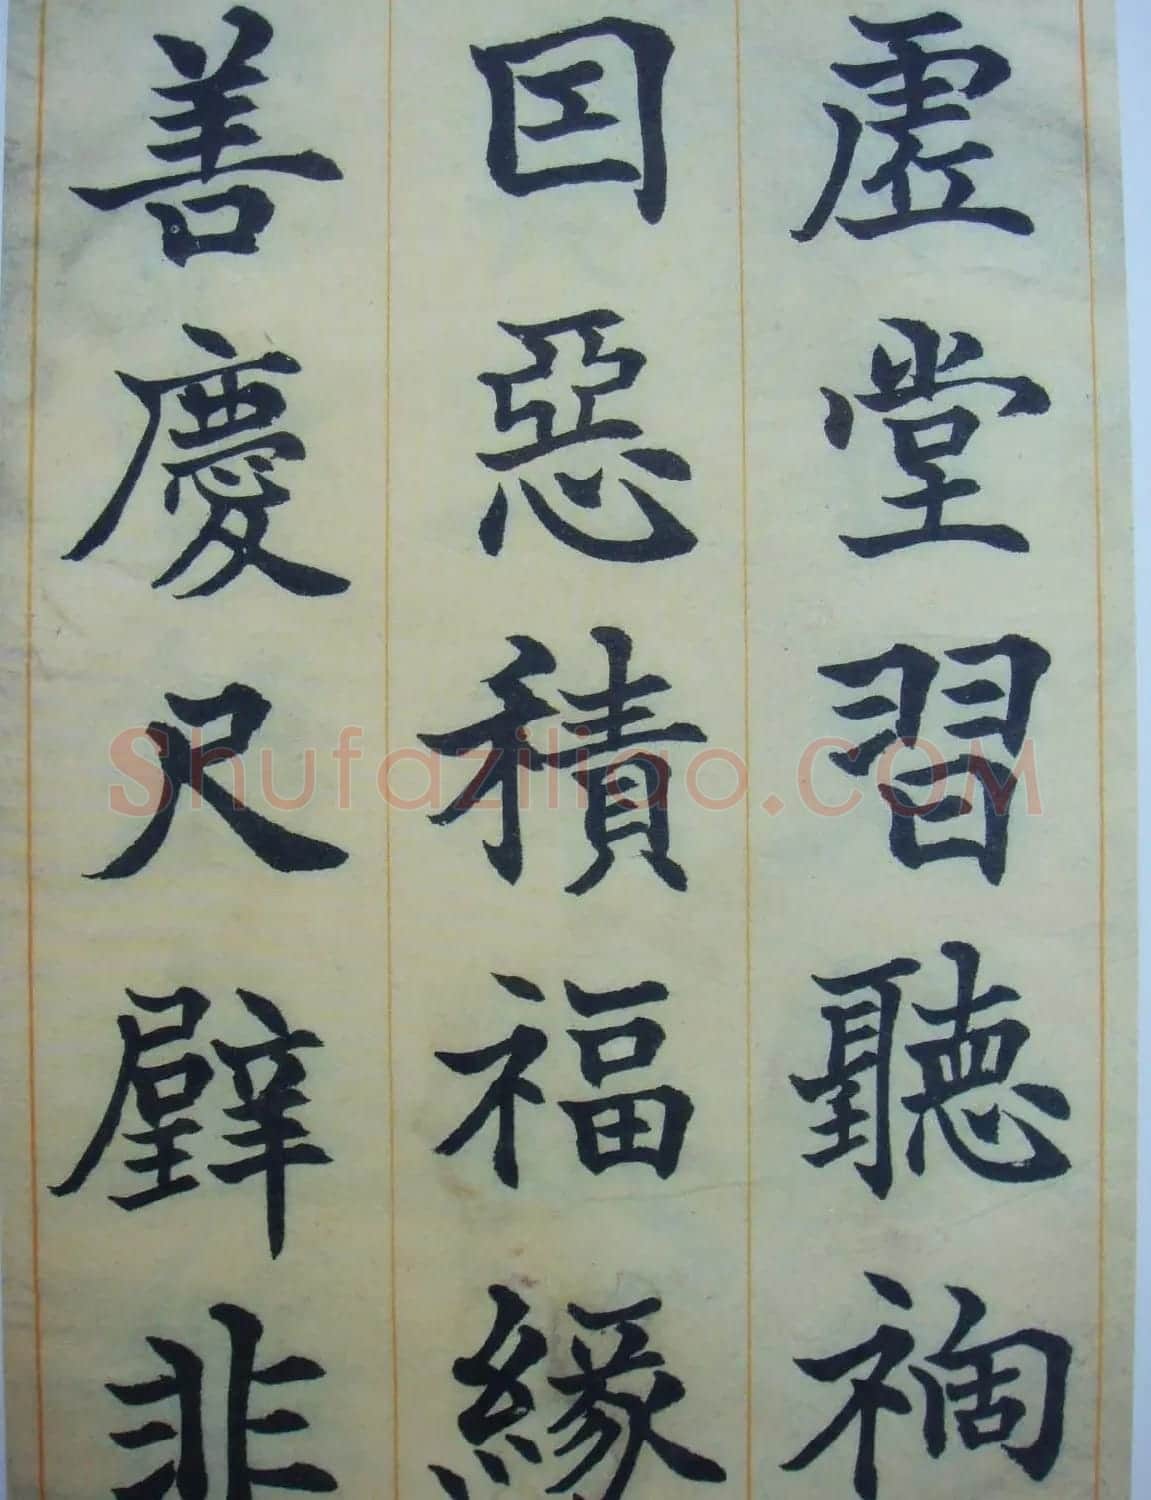 虛堂習聽禍
因惡積福緣
善慶尺璧非
Shufaziliao.COM